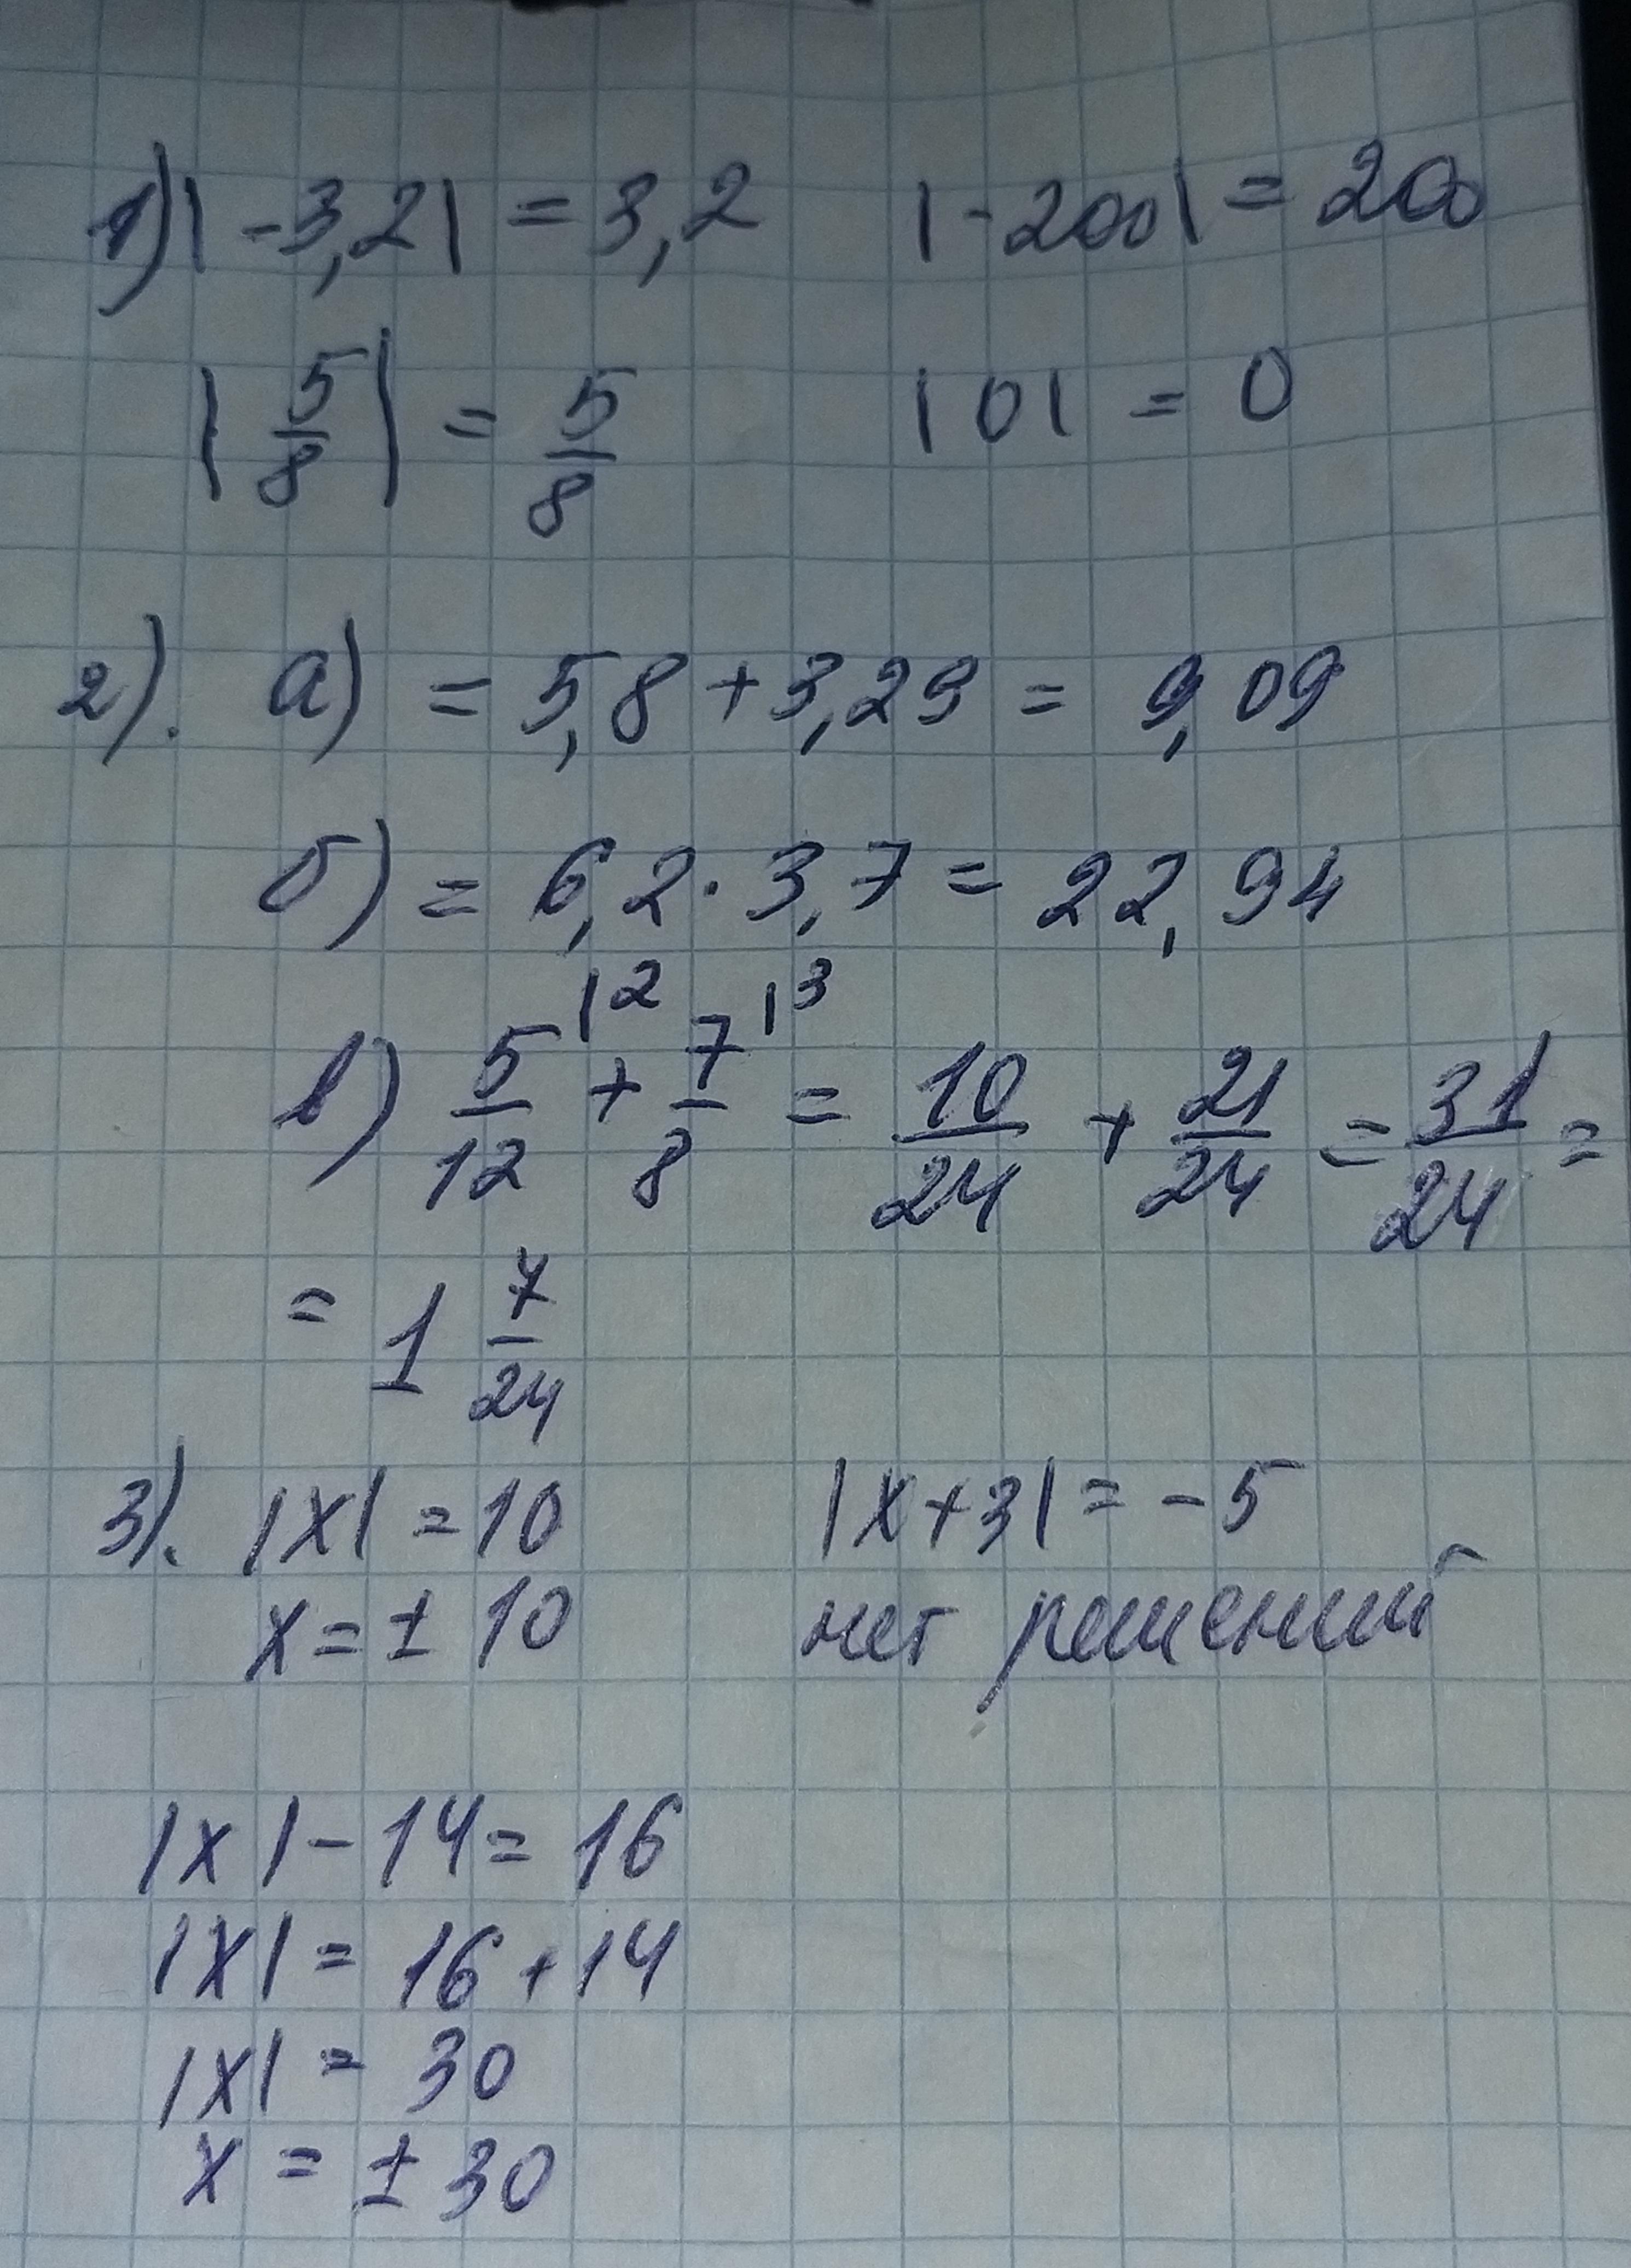 1) |-3,2| = 3,2 |-200| = 200
|5/8| = 5/8 |0| = 0
2). а) = 5,8 + 3,29 = 9,09
б) = 6,2 · 3,7 = 22,94
в) 5/12 |2 + 7/8 |3 = 10/24 + 21/24 = 31/24 =
= 1 7/24
3). |x| = 10 |x+3| = -5
x = ± 10 нет решений
|x| - 14 = 16
|x| = 16 + 14
|x| = 30
x = ± 30